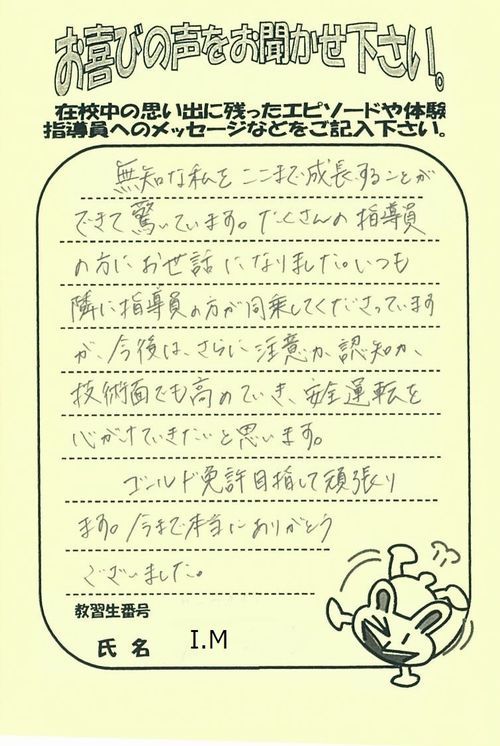 お喜びの声をお聞かせ下さい。
在校中の思い出に残ったエピソードや体験
指導員へのメッセージなどをご記入下さい。
無知な私をここまで成長することが
できて驚いています。たくさんの指導員
の方にお世話になりました。いつも
隣に指導員の方が同乗してくださっています
が、今後は、さらに注意力、認知力、
技術面でも高めていき、安全運転を
心がけていきたいと思います。
ゴールド免許目指して頑張り
ます。今まで本当にありがとう
ございました。
教習生番号
氏名 I.M